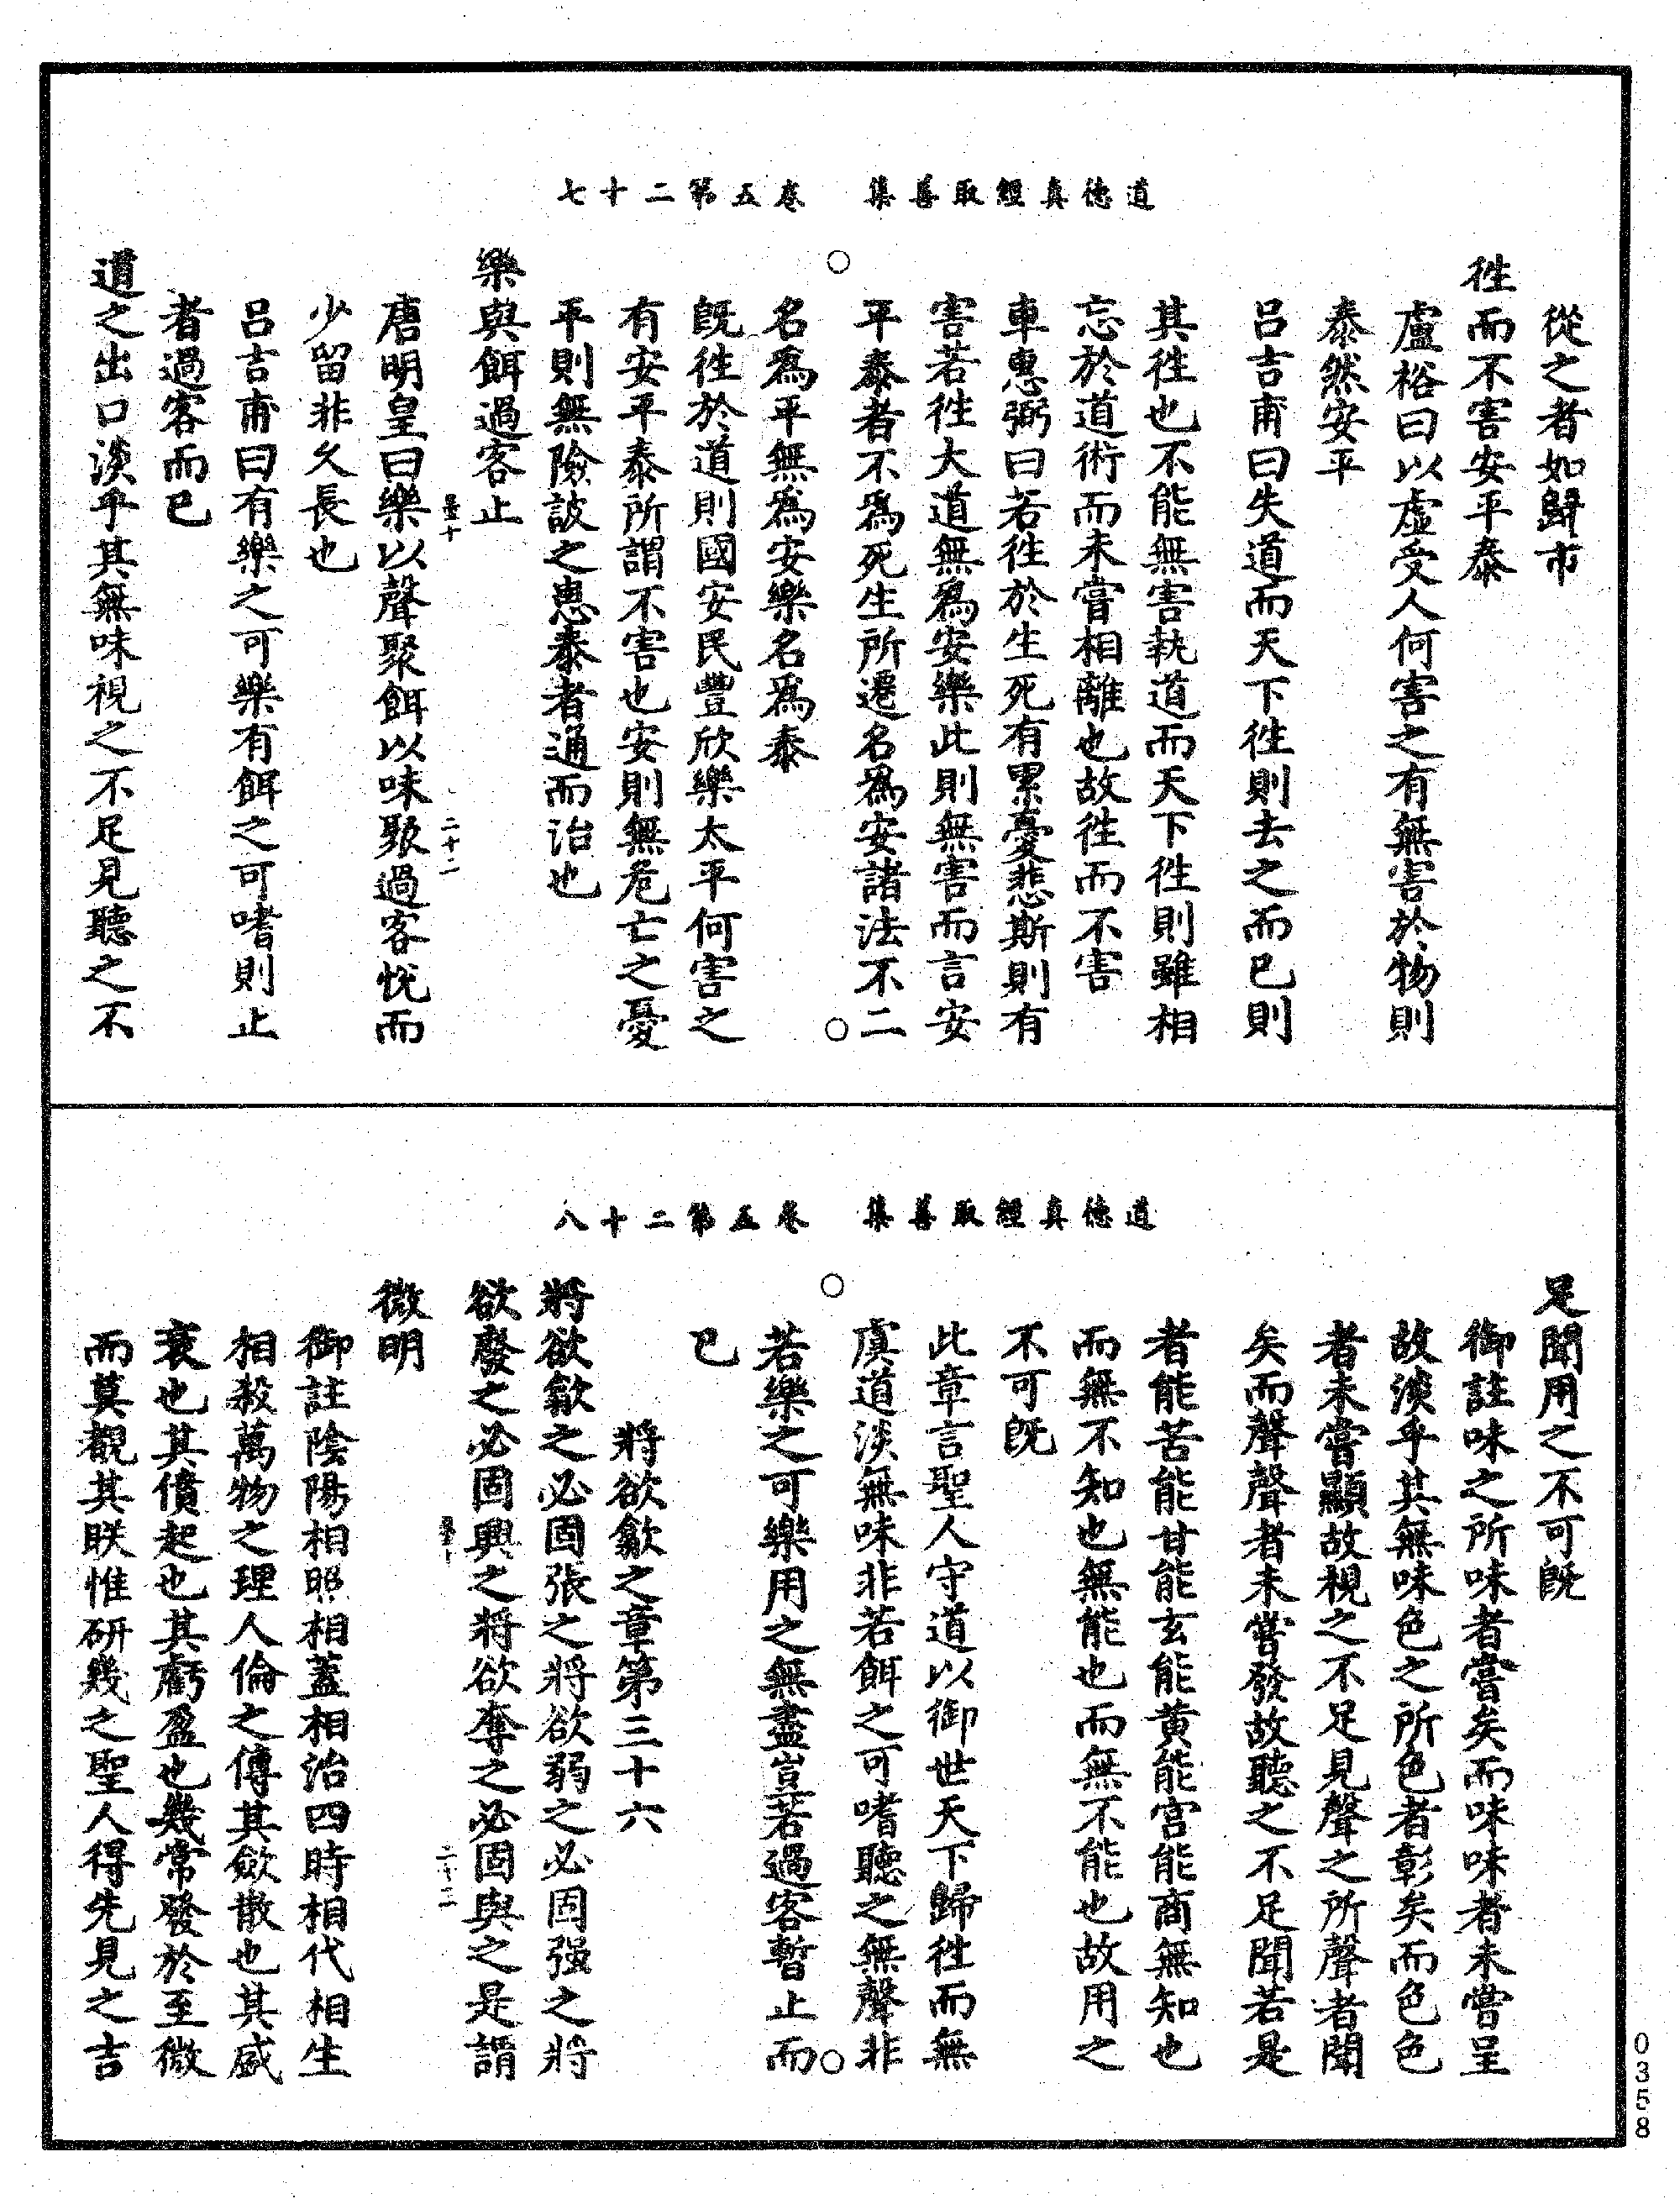 道德真經取善集　卷五第二十七
從之者如歸市
徃而不害安平泰
盧裕曰以虛受人何害之有無害於物則
泰然安平
呂吉甫曰失道而天下徃則去之而已則
其徃也不能無害執道而天下徃則雖相
忘於道術而未嘗相離也故徃而不害
車惠弼曰若徃於生死有累憂悲斯則有
害若徃大道無為安樂此則無害而言安
平泰者不為死生所遷名為安諸法不二
名為平無為安樂名為泰
旣徃於道則國安民豐欣樂太平何害之
有安平泰所謂不害也安則無危亡之憂
平則無險詖之患泰者通而治也
樂與餌過客止
唐明皇曰樂以聲聚餌以味聚過客悅而
少留非久長也
呂吉甫曰有樂之可樂有餌之可嗜則止
者過客而已
道之出口淡乎其無味視之不足見聽之不
二十二
道德真經取善集　卷五第二十八
足聞用之不可旣
御註味之所味者嘗矣而味味者未嘗呈
故淡乎其無味色之所色者彰矣而色色
者未嘗顯故視之不足見聲之所聲者聞
矣而聲聲者未嘗發故聽之不足聞若是
者能苦能甘能玄能黃能宮能商無知也
而無不知也無能也而無不能也故用之
不可旣
此章言聖人守道以御世天下歸徃而無
虞道淡無味非若餌之可嗜聽之無聲非
若樂之可樂用之無盡豈若過客暫止而
已
將欲歙之章第三十六
將欲歙之必固張之將欲弱之必固强之將
欲廢之必固興之將欲奪之必固與之是謂
微明
御註陰陽相照相蓋相治四時相代相生
相殺萬物之理人倫之傳其斂散也其盛
衰也其僨起也其虧盈也幾常發於至微
而莫覩其眹惟研幾之聖人得先見之吉
二十二
0358